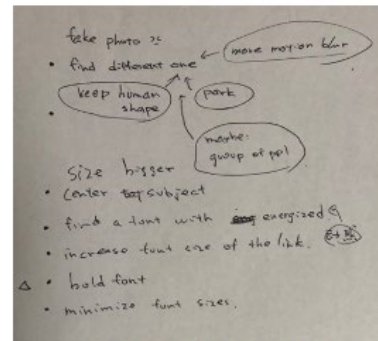 fake photo
more motion blur
• find different one
keep human shape
park
•
maybe:
group of ppl
size bigger
• center subject
• find a font with energized
• increase font size of the link.
Δ • bold font
• minimize font sizes.